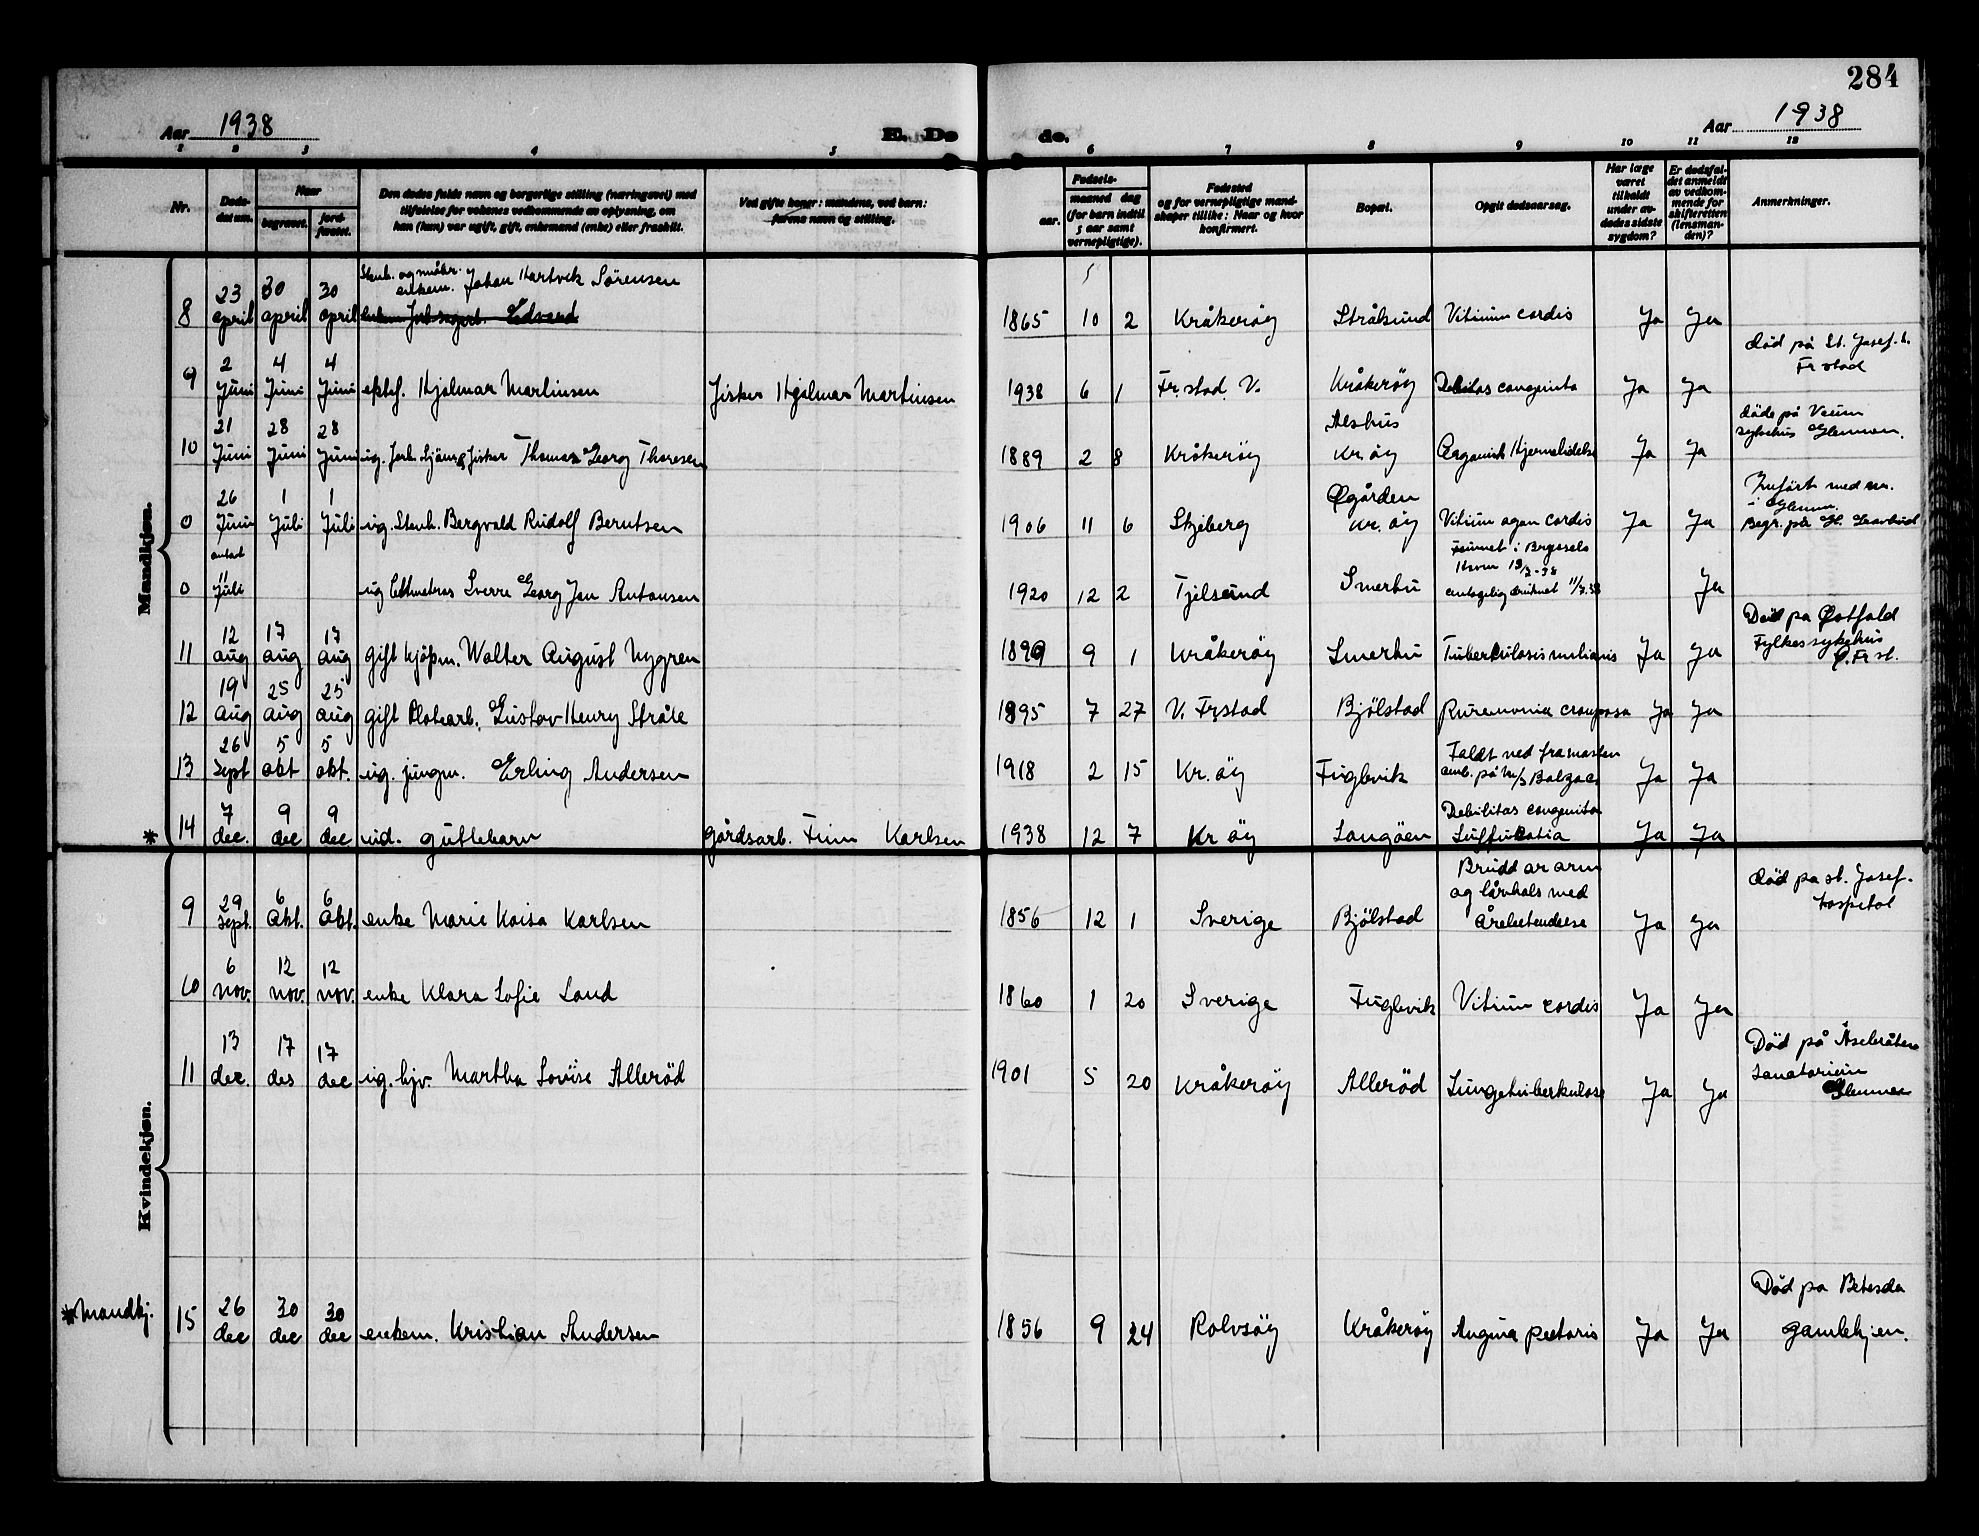 284
Aar 1938
E. Dø
de.
Aar 1938
1 2 3 4 5 6 7 8 9 10 11 12
Nr.
Døds-datum.
Naar
begravet.
jord-fæstet.
Den dødes fulde navn og borgerlige stilling (næringsvei) med
tilføielse for voksnes vedkommende av oplysning, om
han (hun) var ugift, gift, enkemand (enke) eller fraskilt.
Ved gifte koner: mandens, ved barn:
farens navn og stilling.
Fødsels-
aar.
maaned dag
(for barn indtil
5 aar samt
vernepligtige).
Fødested
og for vernepligtige mand-
skaper tillike: Naar og hvor
konfirmert.
Bopæl.
Opgit dødsaarsag.
Har læge
været
tilkaldt
under av-
dødes sidste
sygdom?
Er dødsfal-
det anmeldt
av vedkom-
mende for
skifteretten
(lensman-
den)?
Anmerkninger.
Mandkjøn.
8 23 april 30 april 30 april Stenh. og murer. enkem. Johan Hartvik Sørensen 1865 10 2 Kråkerøy Stråsund Vitium cordis Ja Ja
9 2 Juni 4 Juni 4 Juni eftef. Hjalmar Martinsen Fisker Hjalmar Martinsen 1938 6 1 Fr.stad V. Kråkerøy Debilitas congenita Ja Ja Død på St. Josef. h. Fr stad
10 21 Juni 28 Juni 28 Juni ug. fisker Thomas Georg Thoresen 1889 2 8 Kråkerøy Alshus Kr.øy Organisk Hjertelidelse Ja Ja døde på Veum sykehus Glemmen.
0 26 Juni 1 Juli 1 Juli ug. Stenh. Bergvald Rudolf Berntsen 1906 11 6 Skjeberg Øgården Kr. øy Vitium organ cordis Ja Ja i Glemm.
0 antatt 11 Juli ug Sverre Georg Jan Antonsen 1920 12 2 Tjelsund Smertu Funnet i Bryssels Havn antagelig druknet Ja
11 12 aug 17 aug 17 aug gift kjøpm. Walter August Nygren 1899 9 1 Kråkerøy Smertu Tuberkulosis miliaris Ja Ja Død på Østfold Fylkessykehus
12 19 aug 25 aug 25 aug gift Gustav Henry Stråle 1895 7 27 V. Frstad Bjølstad Pneumonia crouposa Ja Ja
13 26 sept 5 okt 5 okt. ug. jungm. Erling Andersen 1918 2 15 Kr. øy Fuglevik Faldt ned fra masten omb. på M/S Balzac Ja Ja
* 14 7 dec. 9 dec 9 dec ud. guttebarn gårdsarb. Finn Karlsen 1938 12 7 Kr øy Langøen Debilitas congenita Suffucatia Ja Ja
Kvindekjøn.
9 29 sept. 6 okt. 6 okt. enke Marie Kaisa Karlsen 1856 12 1 Sverige Bjølstad Brudd av arm og lårhals med Årebetendelse Ja Ja død på st. Josef. hospital
10 6 nov. 12 nov. 12 nov. enke Klara Sofie Sand 1860 1 20 Sverige Fuglevik Vitium cordis Ja Ja
11 13 dec. 17 des 17 dec ug. hjv. Martha Lovise Allerød 1901 5 20 Kråkerøy Allerød Lungetuberkulose Ja Ja Død på Åsebråten Sanatorium Glemmen
* Mandkj. 15 26 dec 30 dec 30 dec enkem. Kristian Andersen 1856 9 24 Rolvsøy Kråkerøy Angina pectoris Ja Ja Død på Betesda gamlehjem.